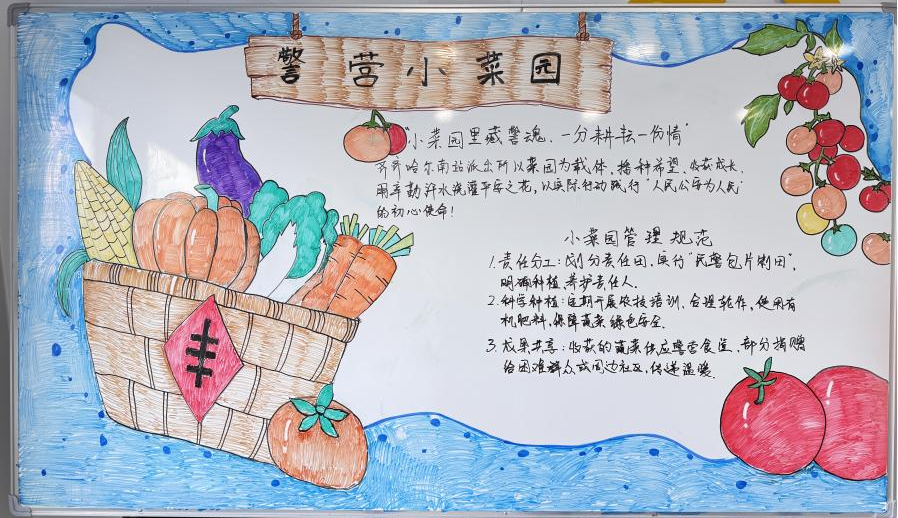 警营小菜园
"小菜园里藏警魂、一分耕耘一份情"
齐齐哈尔南站派出所以菜园为载体,播种希望、收获成长,
用辛勤汗水浇灌平安之花,以实际行动践行"人民公安为人民"
的初心使命!
小菜园管理规范
1.责任分工:划分责任田,实行"民警包片到田",
明确种植、养护责任人.
2.科学种植:定期开展农技培训、合理轮作,使用有
机肥料,保障蔬菜绿色安全.
3.成果共享:收获的蔬菜供应警营食堂、部分捐赠
给困难群众或周边社区,传递温暖.
丰